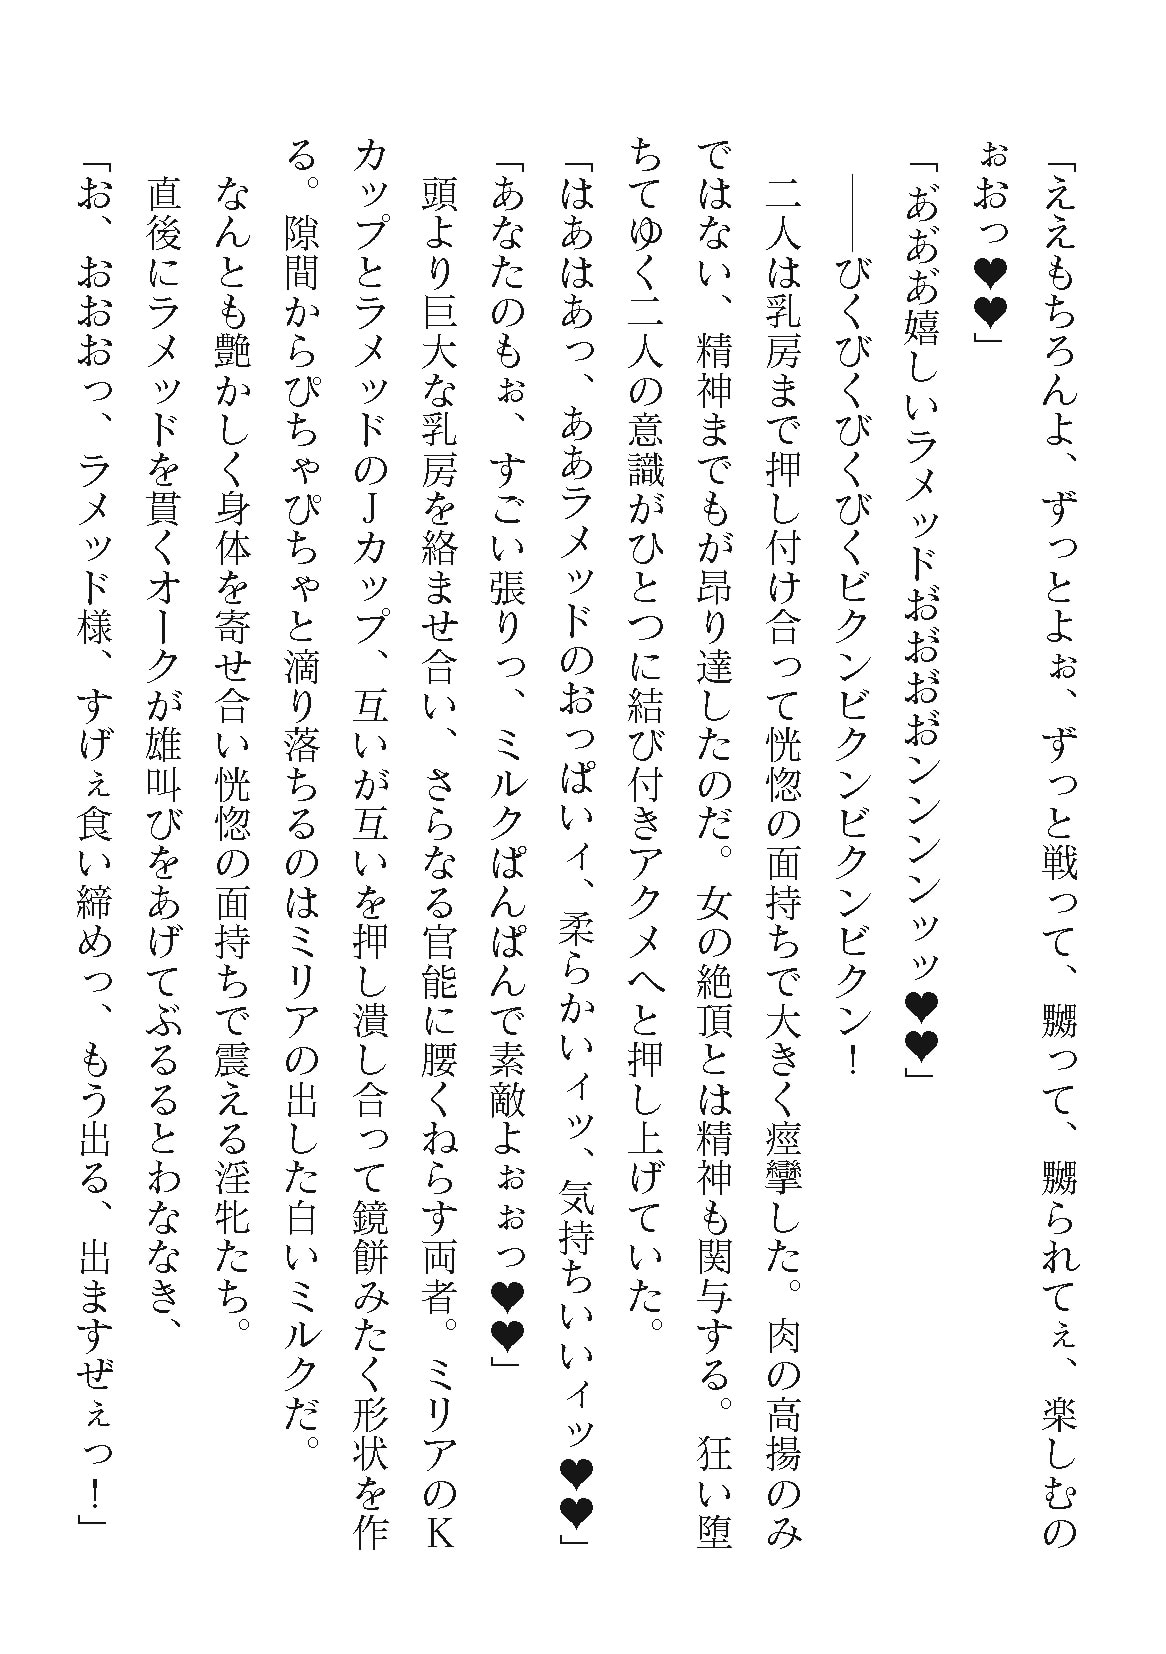 「ええもちろんよ、ずっとよぉ、ずっと戦って、嬲って、嬲られてぇ、楽しむの
ぉおっ♥♥」
「あ゙あ゙あ゙嬉しいラメッドお゙お゙お゙お゙ンンンンッッ♥♥」
――びくびくびくびくビクンビクンビクンビクン！
二人は乳房まで押し付け合って恍惚の面持ちで大きく痙攣した。肉の高揚のみ
ではない、精神までもが昂り達したのだ。女の絶頂とは精神も関与する。狂い堕
ちてゆく二人の意識がひとつに結び付きアクメへと押し上げていた。
「はあはあっ、ああラメッドのおっぱいィ、柔らかいィッ、気持ちいいィッ♥♥」
「あなたのもぉ、すごい張りっ、ミルクぱんぱんで素敵よぉぉっ♥♥」
頭より巨大な乳房を絡ませ合い、さらなる官能に腰くねらす両者。ミリアのＫ
カップとラメッドのＪカップ、互いが互いを押し潰し合って鏡餅みたく形状を作
る。隙間からぴちゃぴちゃと滴り落ちるのはミリアの出した白いミルクだ。
なんとも艶かしく身体を寄せ合い恍惚の面持ちで震える淫牝たち。
直後にラメッドを貫くオークが雄叫びをあげてぶるるとわななき、
「お、おおおっ、ラメッド様、すげぇ食い締めっ、もう出る、出ますぜぇっ！」